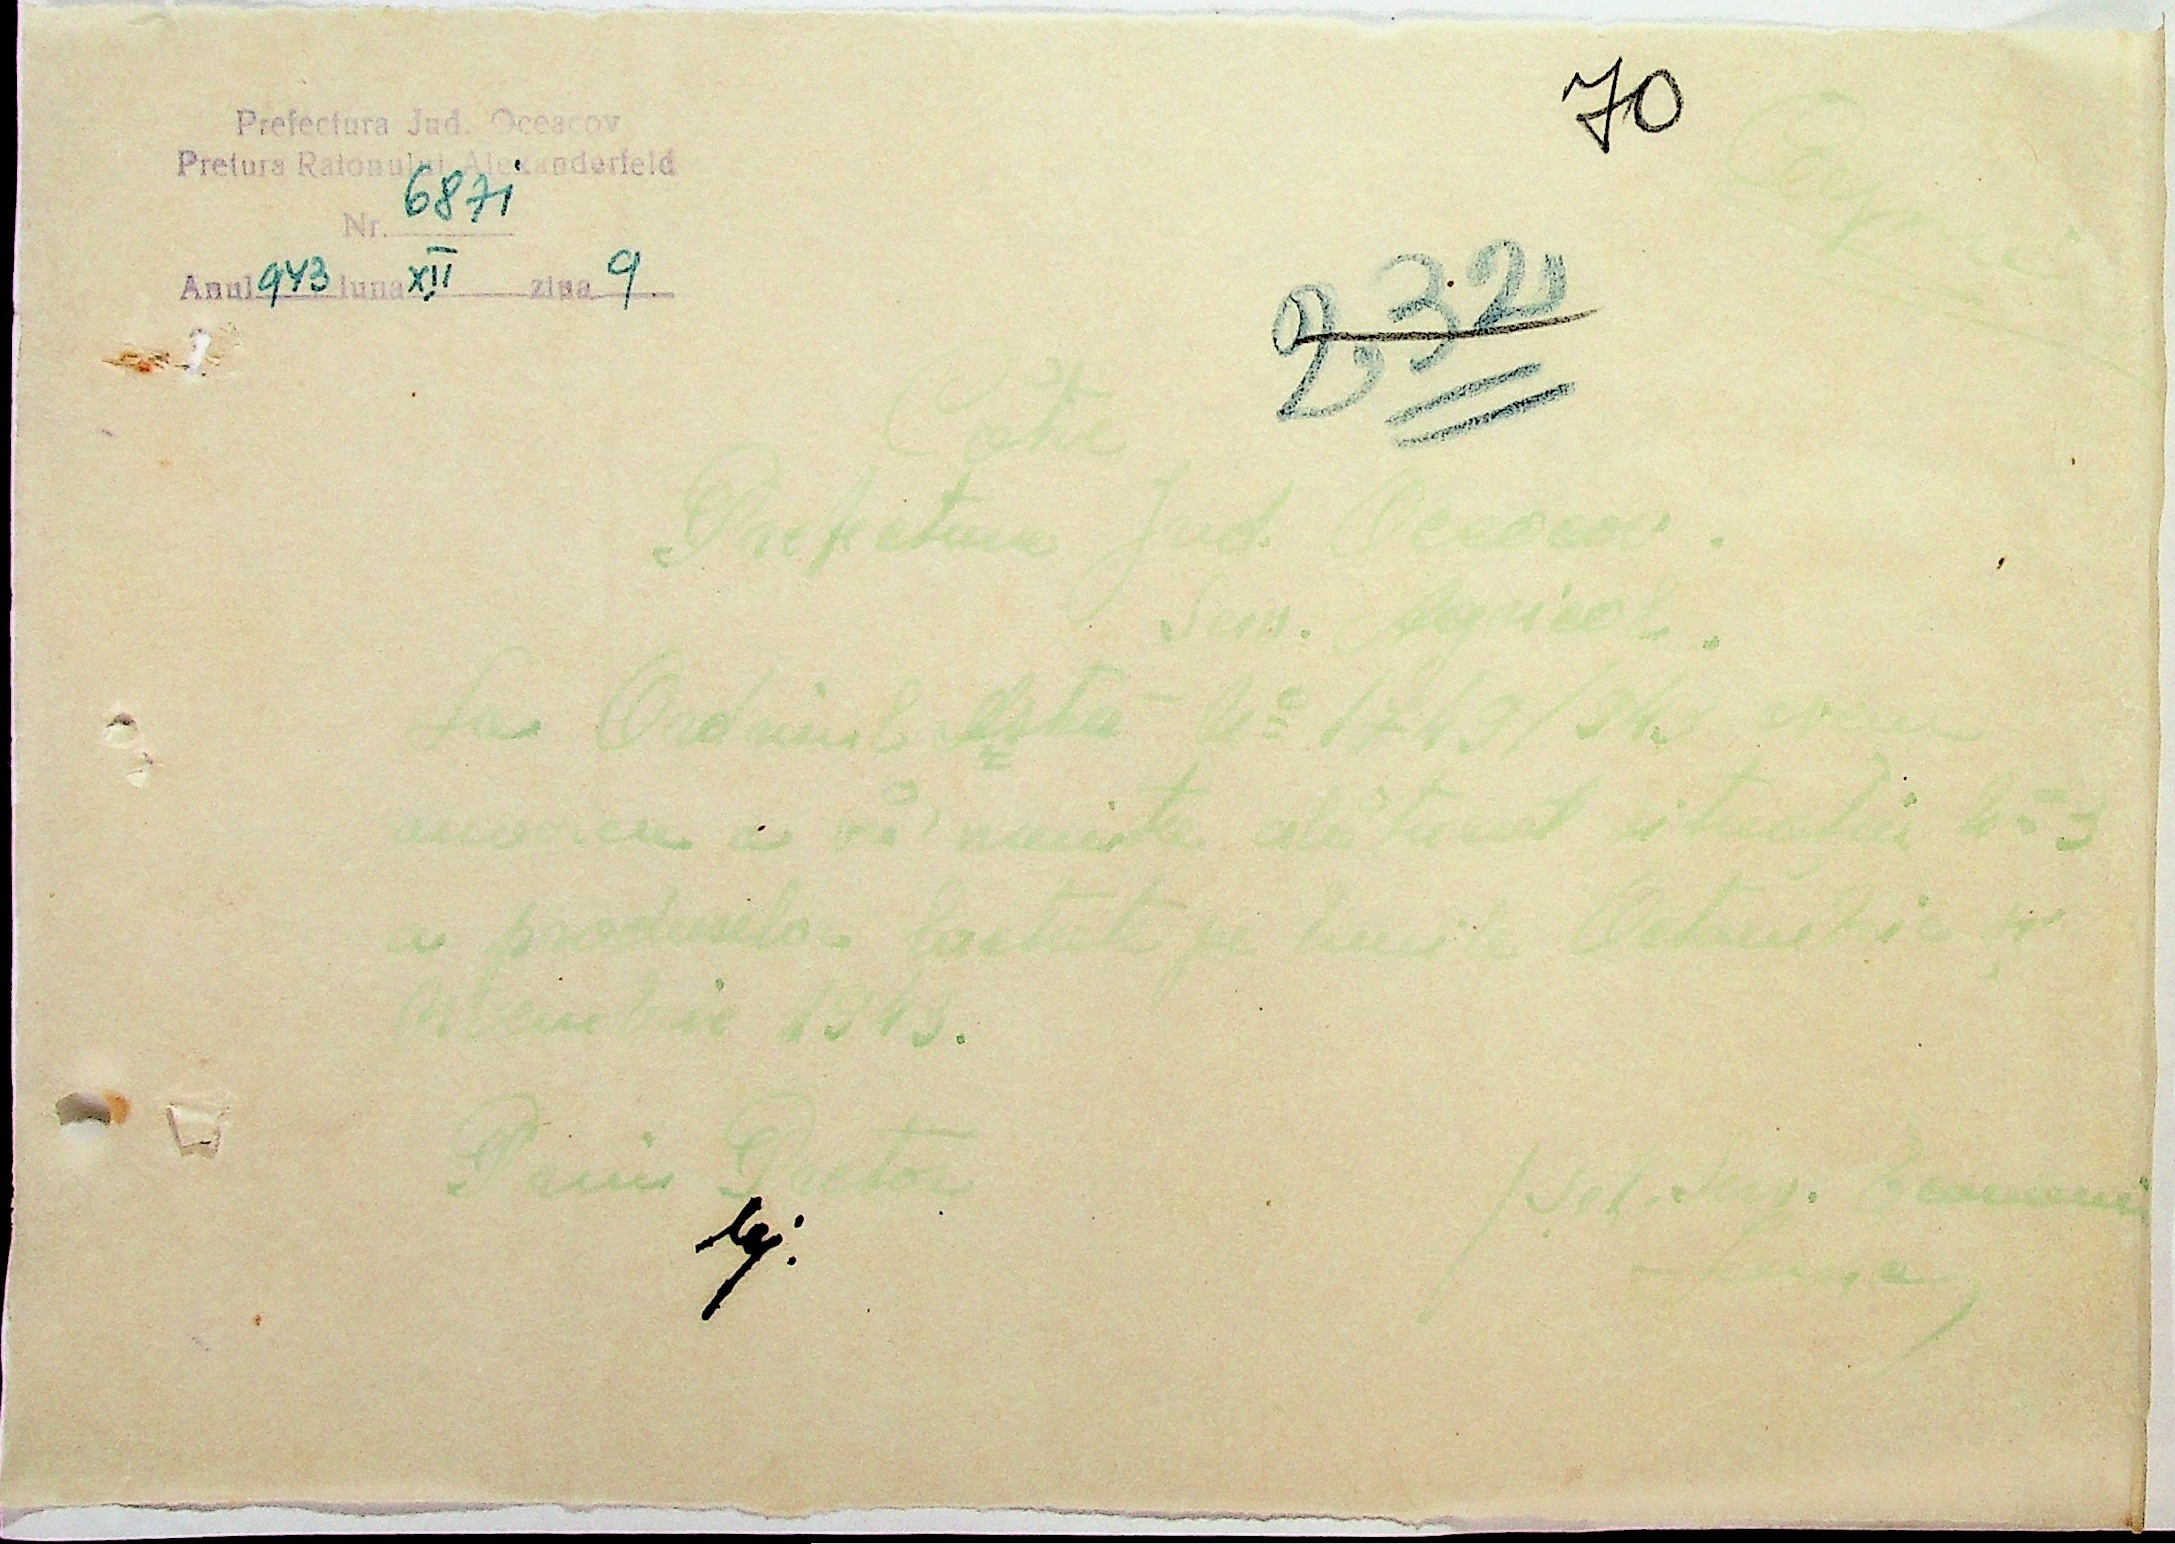 70
Prefectura Jud. Oceacov
Pretura Raionului Alexanderfeld
Nr. 6871
Anul 943 luna XII ziua 9
232
Către
Prefectura Jud. Oceacov.
Serv. Agricol.
La Ordinul Dstră No 1749/943 avem
onoarea a vă trimite alăturat situația No 3
a produselor pe lunile Octombrie și
Noembrie 1943.
Prim Pretor
Șef. Serv. Economic